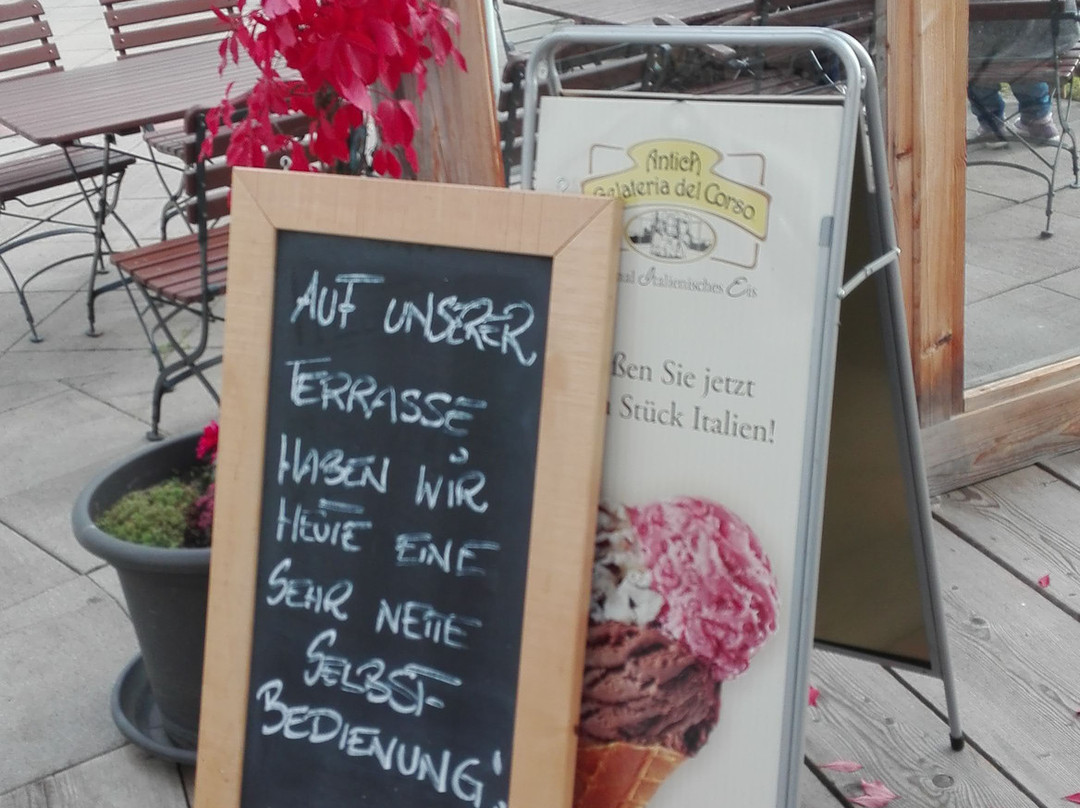 AUF UNSERER
TERRASSE
HABEN WIR
HEUTE EINE
SEHR NETTE
SELBST-
BEDIENUNG!
Antica
Gelateria del Corso
Italienisches Eis
Sie jetzt
Stück Italien!